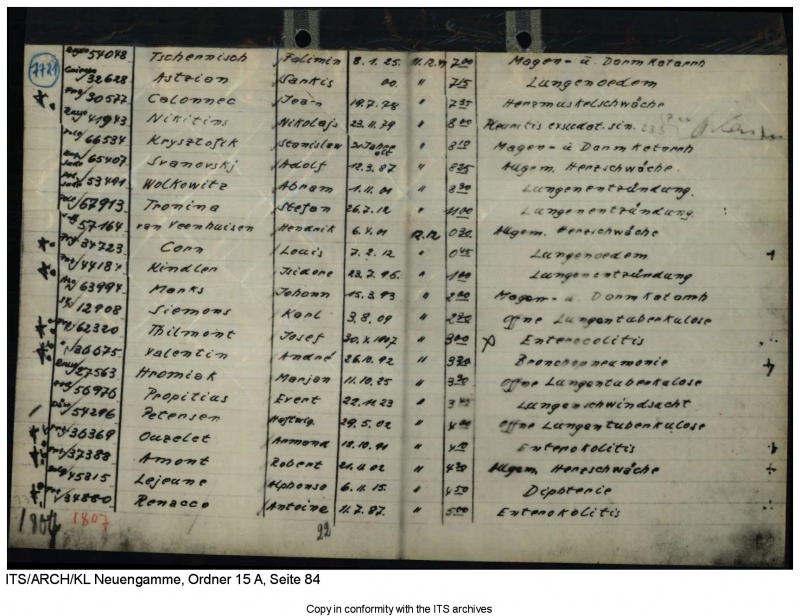 7721
54048 Tschennisch Folimin 8.1.25. 11.12. 7.00 Magen- u. Darmkatarrh
32628 Astrian Sankis 00. " 7.15 Lungenoedem
30577 Colonnec Jean 19.7.78 " 7.35 Herzmuskelschwäche
41943 Nikitins Nikolajs 23.11.79 " 8.00 Pleuritis exsudat. sin.
66534 Krysztofik Stanislaw " 8.10 Magen- u Darmkatarrh
65407 Svanovskj Adolf 12.3.87 " 8.25 Allgem. Herzschwäche.
53491 Wolkowitz Abram 1.11.01 " 8.30 Lungenentzündung.
67913 Tronina Stefan 26.7.12 " 11.00 Lungenentzündung
57164 van Veenhuisen Hendrik 6.4.01 12.12 0.20 Allgem. Herzschwäche
34723 Corn Louis 7.2.12 " 0.45 Lungenoedem +
44187 Kindler Isidore 23.7.96. " 1.00 Lungenentzündung
63994 Marks Johann 15.3.93 " 2.00 Magen- u. Darmkatarrh
12908 Siemons Karl 3.8.09 " 2.20 offne Lungentuberkulose
62320 Thilmont Josef " 3.00 Enterocolitis
36675 Valentin André 26.10.92 " 3.20 Bronchopneumonie +
27563 Hromiak Marjan 11.10.25 " 3.30 offne Lungentuberkulose
56976 Propitius Evert 22.11.23 " 3.45 Lungenschwindsucht
54296 Petersen Hartwig. 29.5.02 " 4.00 offne Lungentuberkulose
36369 Ouzelet Armond 18.10.91 " 4.10 Enterokolitis
37388 Amont Robert 21.11.02 " 4.30 Allgem. Herzschwäche +
45315 Lejeune Alphonse 6.11.15. " 4.50 Diphterie
34880 Renacco Antoine 11.7.87. " 5.00 Enterokolitis
1807
22
ITS/ARCH/KL Neuengamme, Ordner 15 A, Seite 84
Copy in conformity with the ITS archives